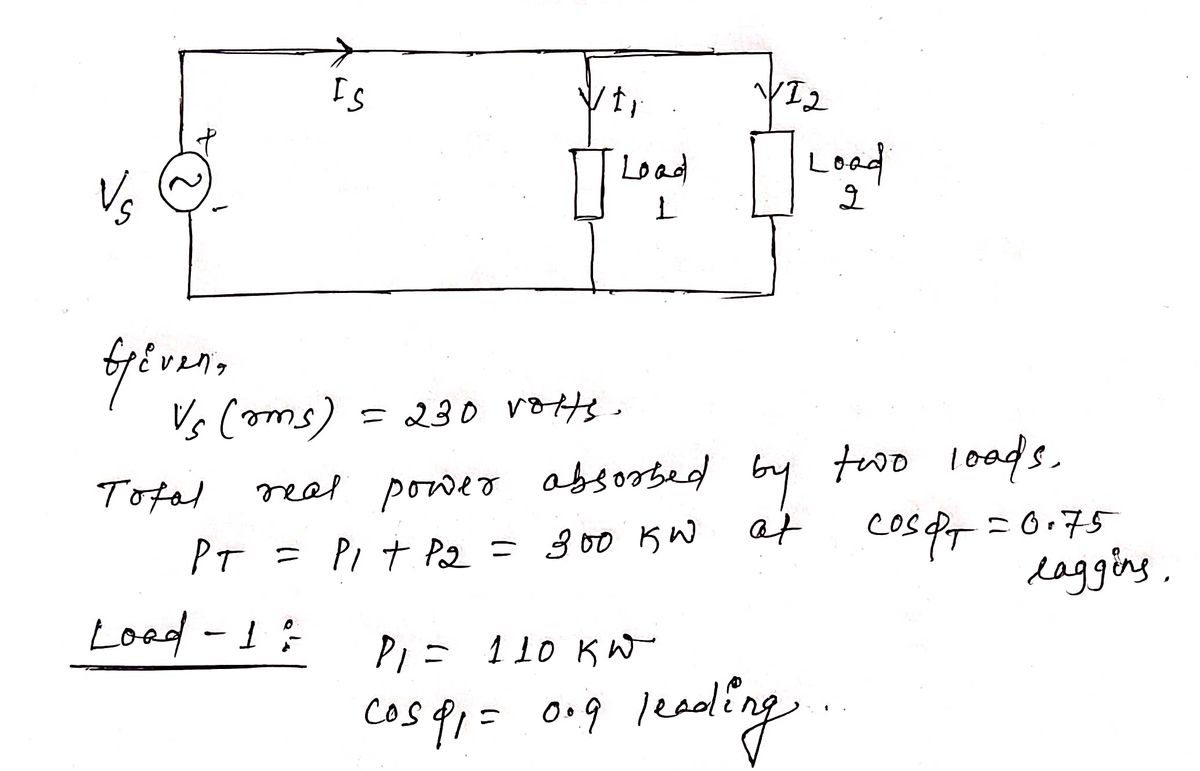 Is
I1
I2
+
Vs
-
Load
1
Load
2
Given,
Vs (rms) = 230 volts.
Total real power absorbed by two loads.
PT = P1 + P2 = 300 KW at cosφT = 0.75
lagging.
Load - 1 :-
P1 = 110 KW
cosφ1 = 0.9 leading..